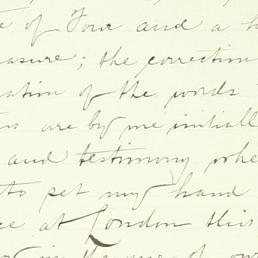 of Four and a h
easure; the correction
ation of the words
are by me initiall
and testimony whe
to set my hand
at London this
in the year of our